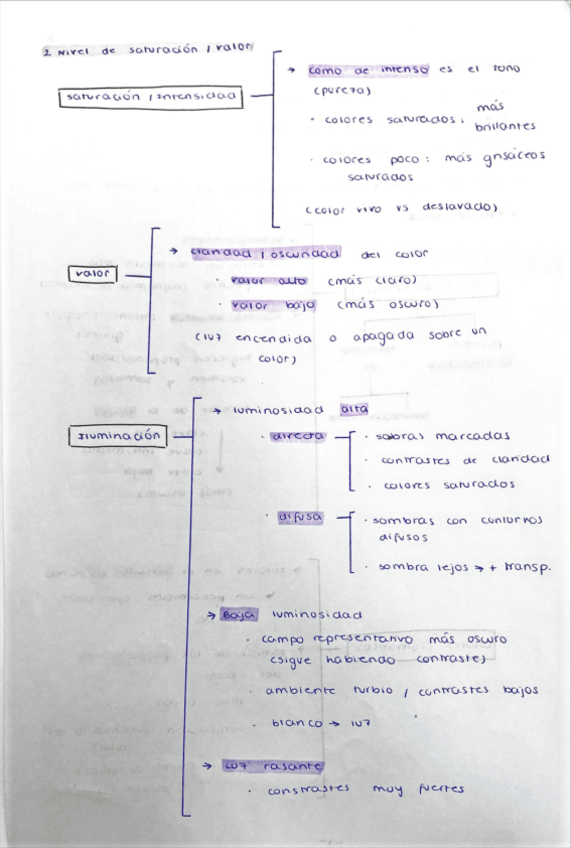 2 Nivel de saturación / valor
saturación / Intensidad
→ como de intenso es el tono
(pureza)
· colores saturados: más
brillantes
· colores poco: más grisáceos
saturados
(color vivo vs deslavado)
valor
→ claridad / oscuridad del color
· valor alto (más claro)
· valor bajo (más oscuro)
(luz encendida o apagada sobre un
color)
Iluminación
→ luminosidad alta
· directa
· sobras marcadas
· contrastes de claridad
· colores saturados
· difusa
· sombras con contornos
difusos
· sombra lejos → + transp.
→ Baja luminosidad
· campo representativo más oscuro
(sigue habiendo contraste)
· ambiente turbio / contrastes bajos
· blanco → luz
→ Luz rasante
· constrastes muy fuertes